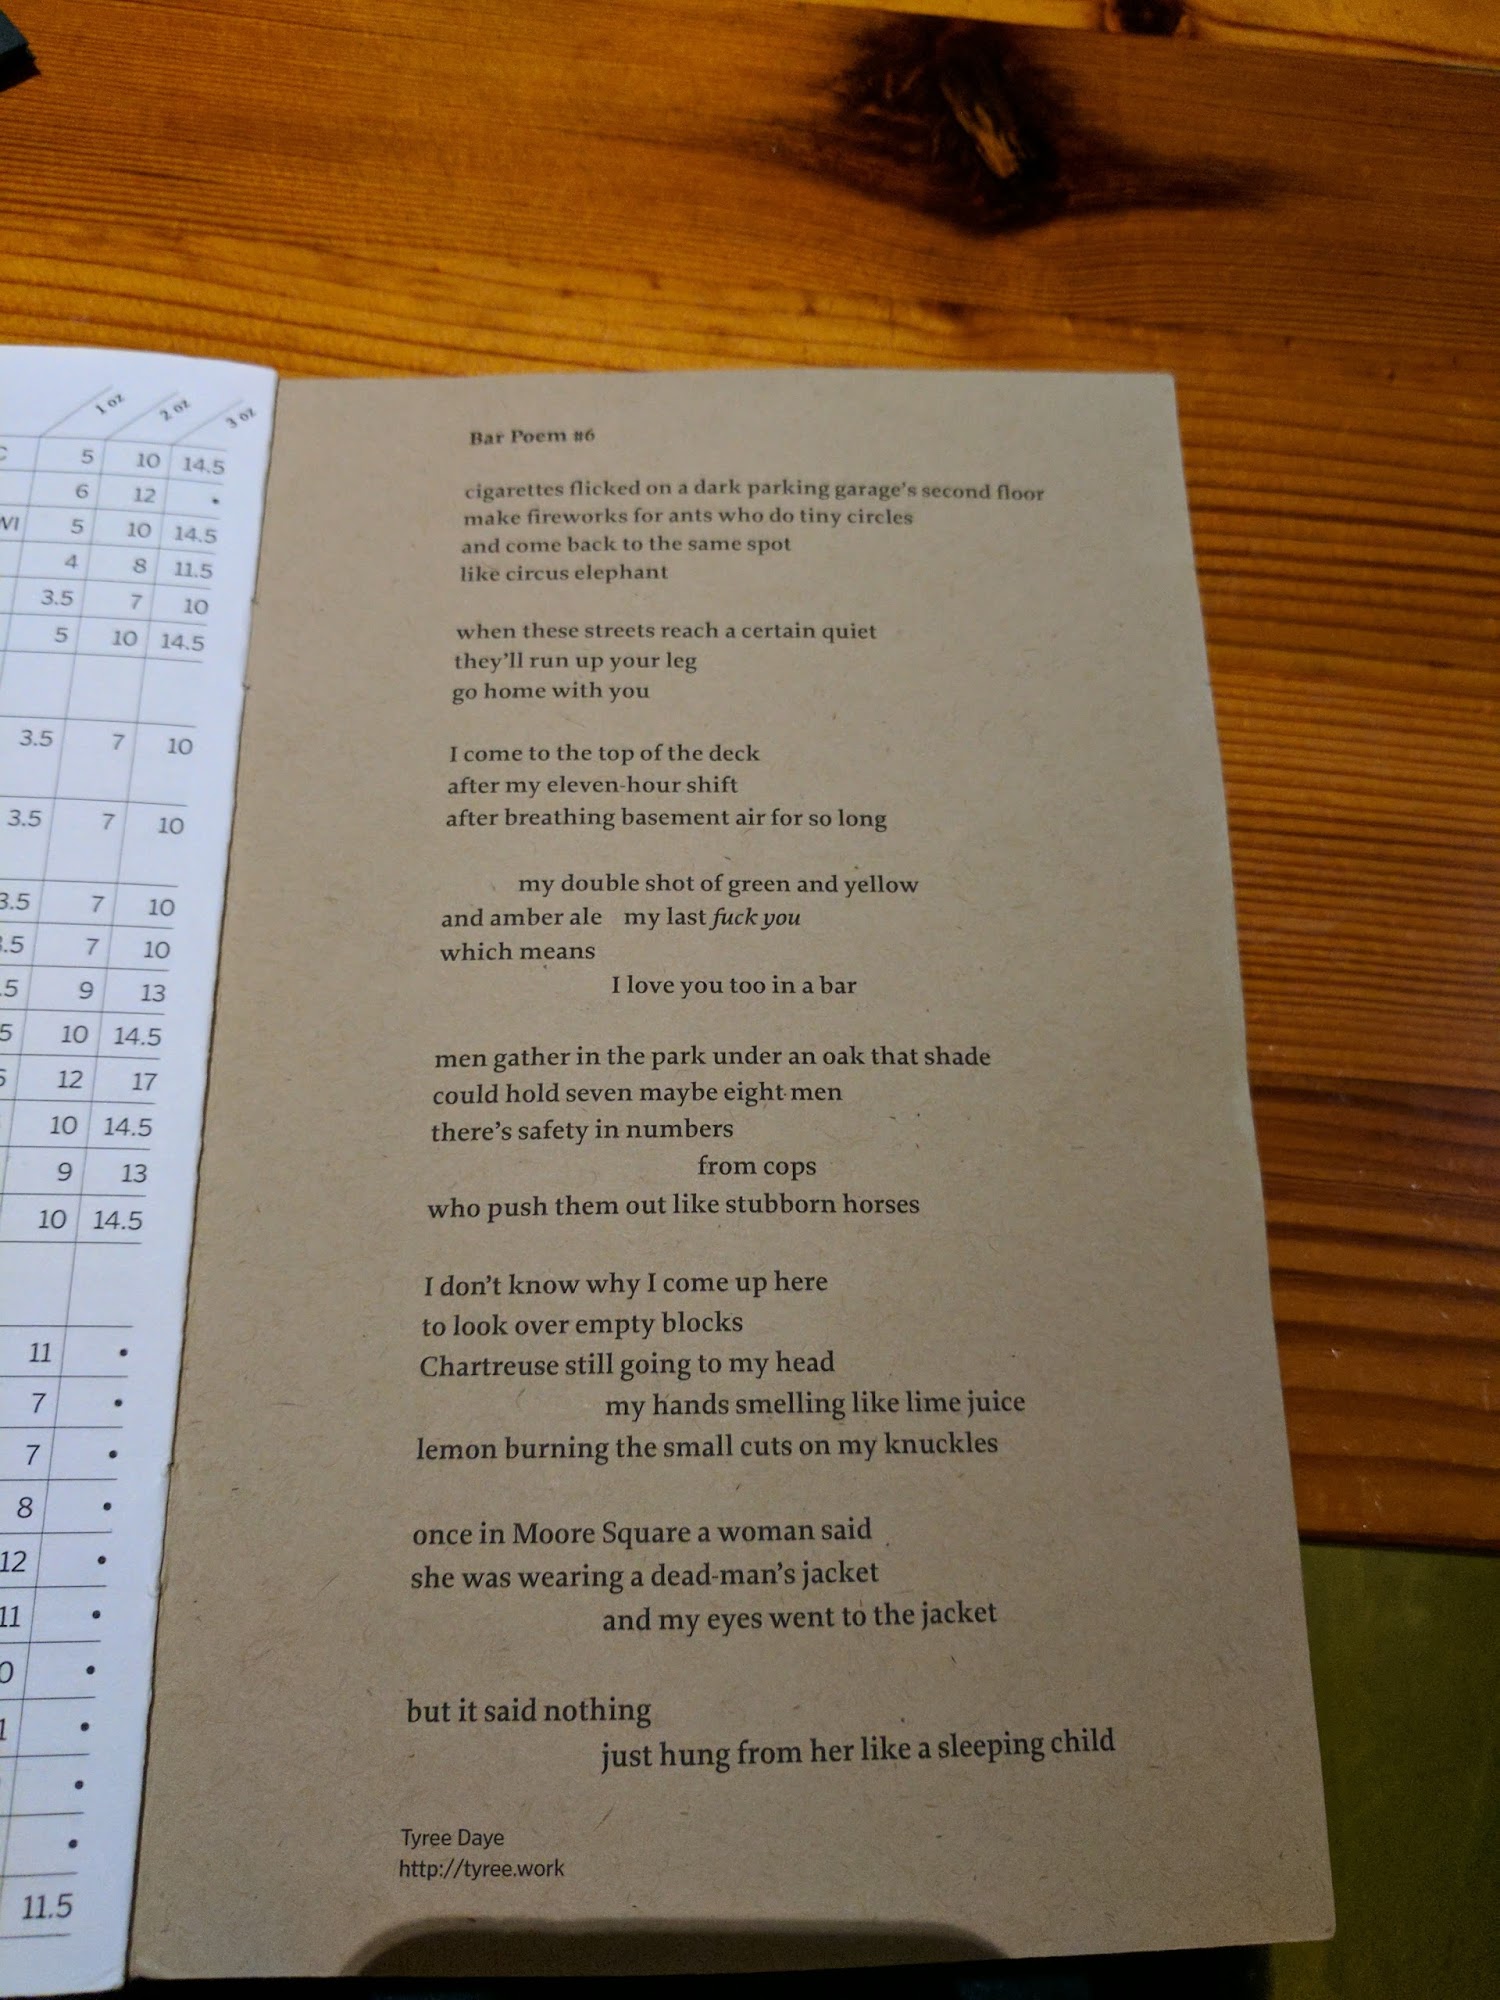 1 oz 2 oz 3 oz
C 5 10 14.5
6 12 •
WI 5 10 14.5
4 8 11.5
3.5 7 10
5 10 14.5
3.5 7 10
3.5 7 10
3.5 7 10
3.5 7 10
.5 9 13
5 10 14.5
12 17
10 14.5
9 13
10 14.5
11 •
7 •
7 •
8 •
12 •
11 •
0 •
1 •
•
•
11.5
Bar Poem #6
cigarettes flicked on a dark parking garage's second floor
make fireworks for ants who do tiny circles
and come back to the same spot
like circus elephant
when these streets reach a certain quiet
they'll run up your leg
go home with you
I come to the top of the deck
after my eleven-hour shift
after breathing basement air for so long
my double shot of green and yellow
and amber ale my last fuck you
which means
I love you too in a bar
men gather in the park under an oak that shade
could hold seven maybe eight men
there's safety in numbers
from cops
who push them out like stubborn horses
I don't know why I come up here
to look over empty blocks
Chartreuse still going to my head
my hands smelling like lime juice
lemon burning the small cuts on my knuckles
once in Moore Square a woman said
she was wearing a dead-man's jacket
and my eyes went to the jacket
but it said nothing
just hung from her like a sleeping child
Tyree Daye
http://tyree.work